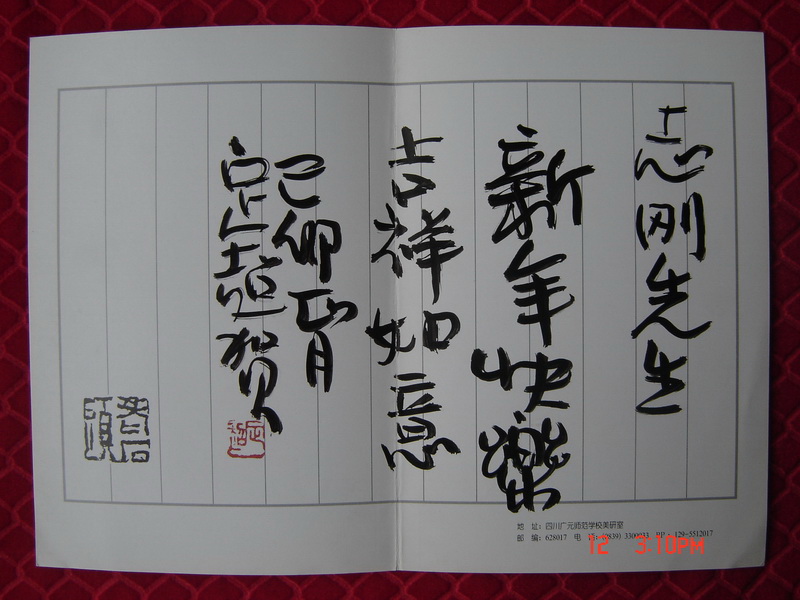 志刚先生
新年快樂
吉祥如意
己卯正月
贺
地 址：四川广元师范学校美研室
邮 编：628017 电 话：(0839) 129-5512017
12 3:10PM